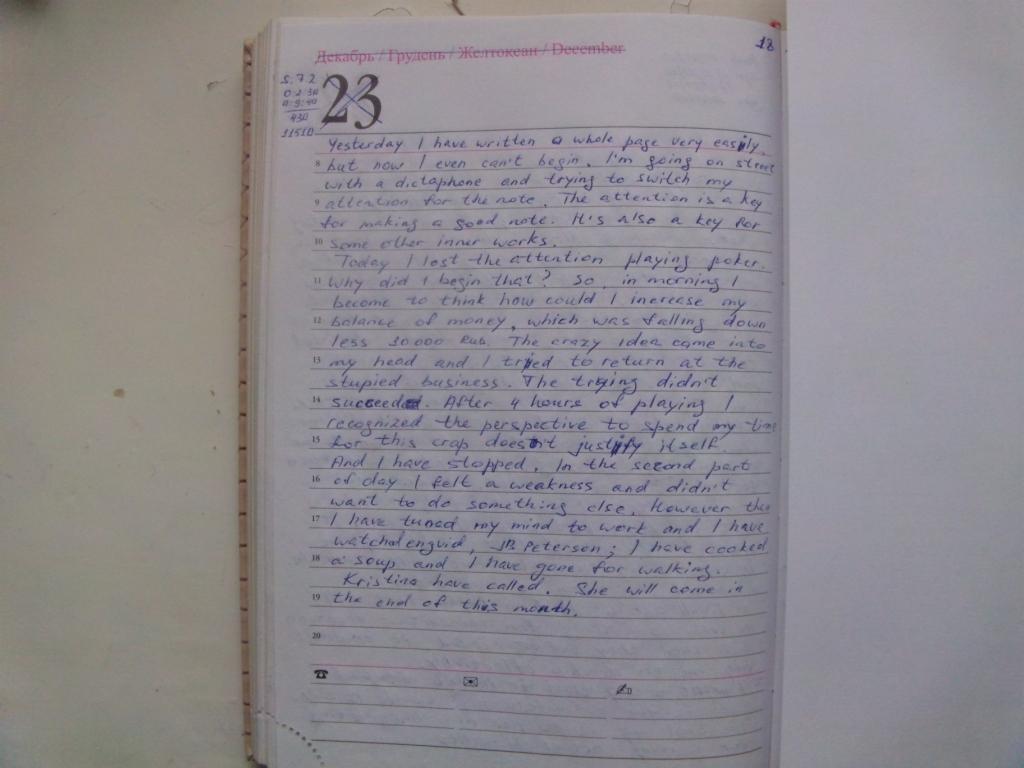 18
Декабрь / Грудень / Желтоксан / December
23
S: 7.2
0:2:30
11510
430
Yesterday I have written a whole page very easily,
8 but now I even can't begin. I'm going on street
with a dictaphone and trying to switch my
9 attention for the note. The attention is a key
for making a good note. It's also a key for
10 some other inner works.
Today I lost the attention playing poker.
11 Why did I begin that? So, in morning I
become to think how could I increase my
12 balance of money, which was falling down
less 10000 rub. The crazy idea came into
13 my head and I tried to return at the
stupied business. The trying didn't
14 succeed. After 4 hours of playing I
recognized the perspective to spend my time
15 for this crap doesn't justify itself.
And I have stopped. In the second part
16 of day I felt a weakness and didn't
want to do something else. However then
17 I have tuned my mind to work and I have
watched enguid, JB Peterson; I have cooked
18 a soup and I have gone for walking.
Kristina have called. She will come in
19 the end of this month.
20